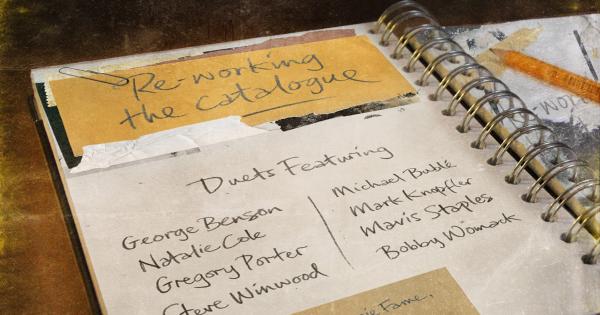 Re-working
the catalogue
Duets Featuring
George Benson
Natalie Cole
Gregory Porter
Steve Winwood
Michael Bublé
Mark Knopfler
Mavis Staples
Bobby Womack
Fame,